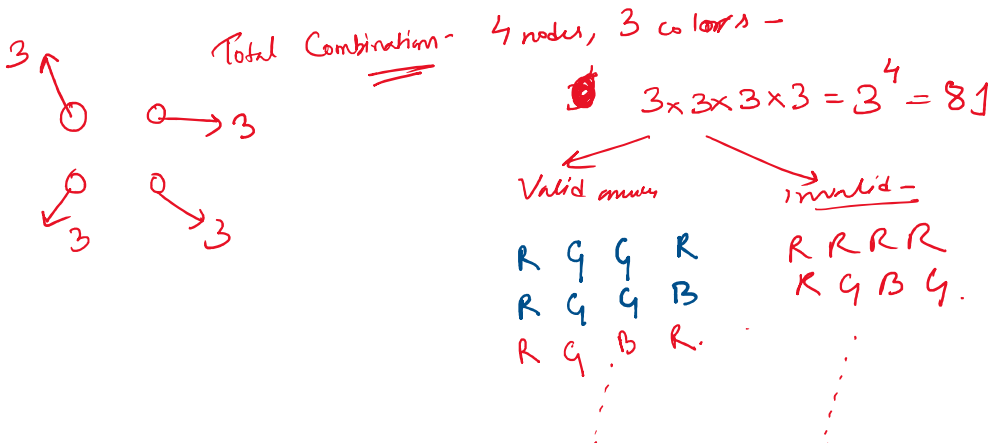 Total Combination - 4 nodes, 3 colors -
3 × 3 × 3 × 3 = 3^4 = 81
3
3
3
3
Valid
R G G R
R G G B
R G B R.
invalid -
R R R R
R G B G.